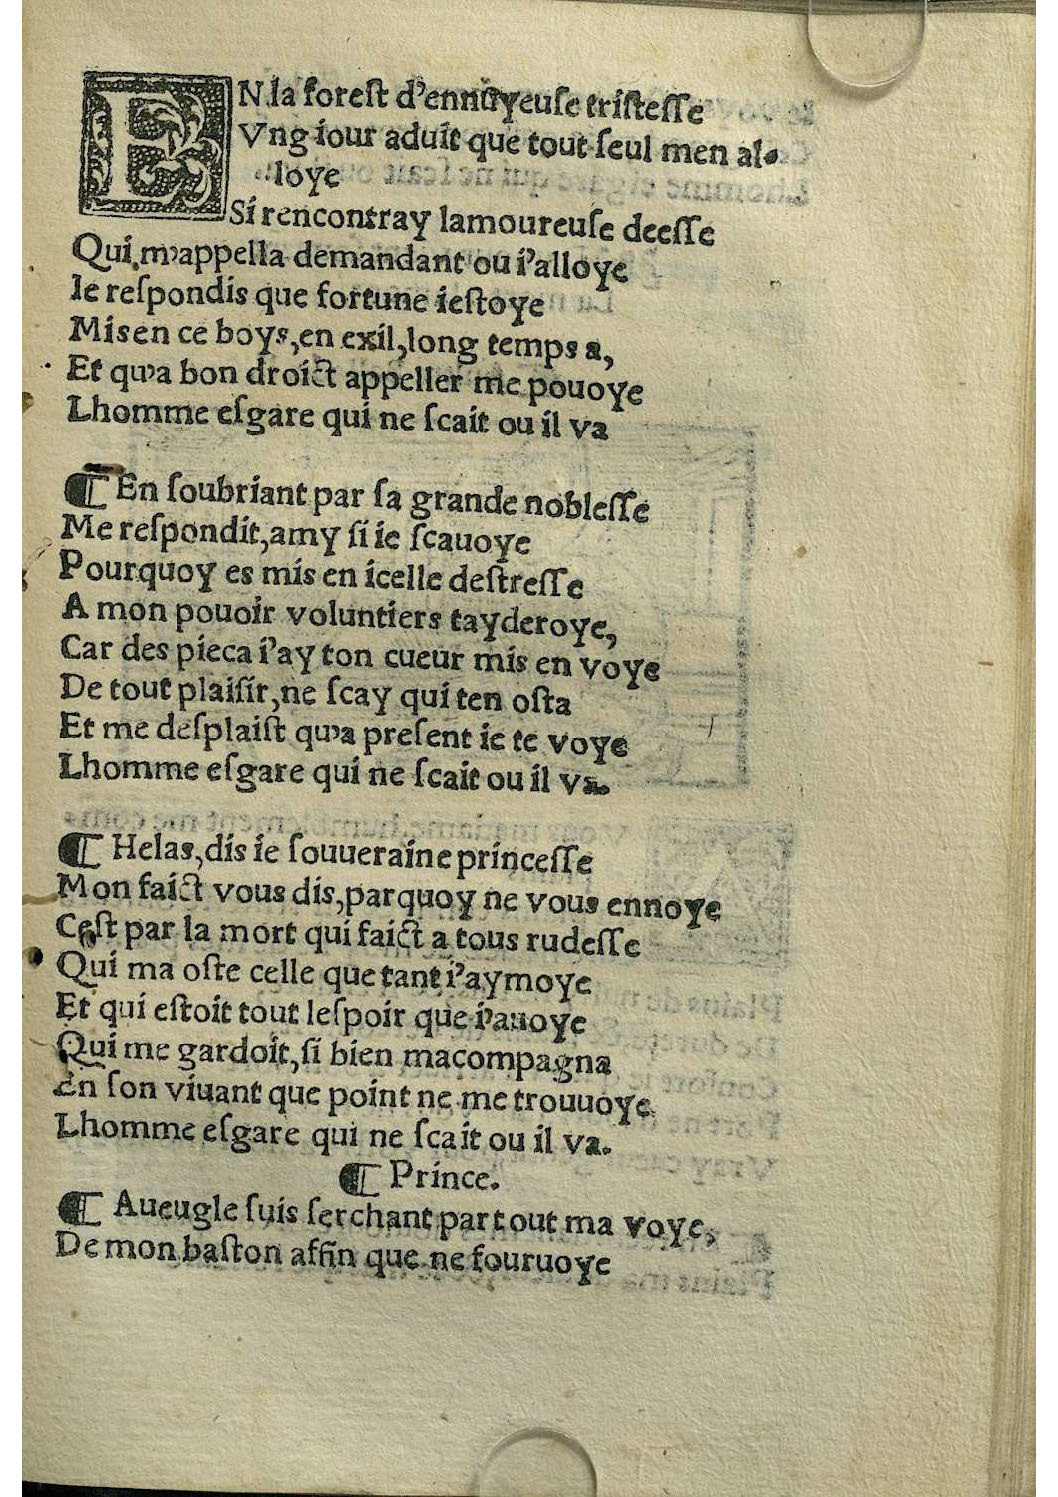 EN la foreſt d'ennuyeuſe triſteſſe
Vng iour aduit que tout ſeul men al-
loye
Si rencontray lamoureuſe deeſſe
Qui m'appella demandant ou i'alloye
Ie reſpondis que fortune ieſtoye
Mis en ce boys, en exil, long temps a,
Et qu'a bon droict appeller me pouoye
Lhomme eſgare qui ne ſcait ou il va
¶ En ſoubriant par ſa grande nobleſſe
Me reſpondit, amy ſi ie ſcauoye
Pourquoy es mis en icelle deſtreſſe
A mon pouoir voluntiers tayderoye,
Car des pieca i'ay ton cueur mis en voye
De tout plaiſir, ne ſcay qui ten oſta
Et me deſplaiſt qu'a preſent ie te voye
Lhomme eſgare qui ne ſcait ou il va.
¶ Helas, dis ie ſouueraine princeſſe
Mon faict vous dis, parquoy ne vous ennoye
Ceſt par la mort qui faict a tous rudeſſe
Qui ma oſte celle que tant i'aymoye
Et qui eſtoit tout leſpoir que i'auoye
Qui me gardoit, ſi bien macompagna
En ſon viuant que point ne me trouuoye
Lhomme eſgare qui ne ſcait ou il va.
¶ Prince.
¶ Aueugle ſuis ſerchant par tout ma voye,
De mon baſton affin que ne fouruoye